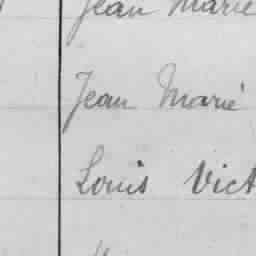 Jean Marie
Jean Marié
Louis Vict